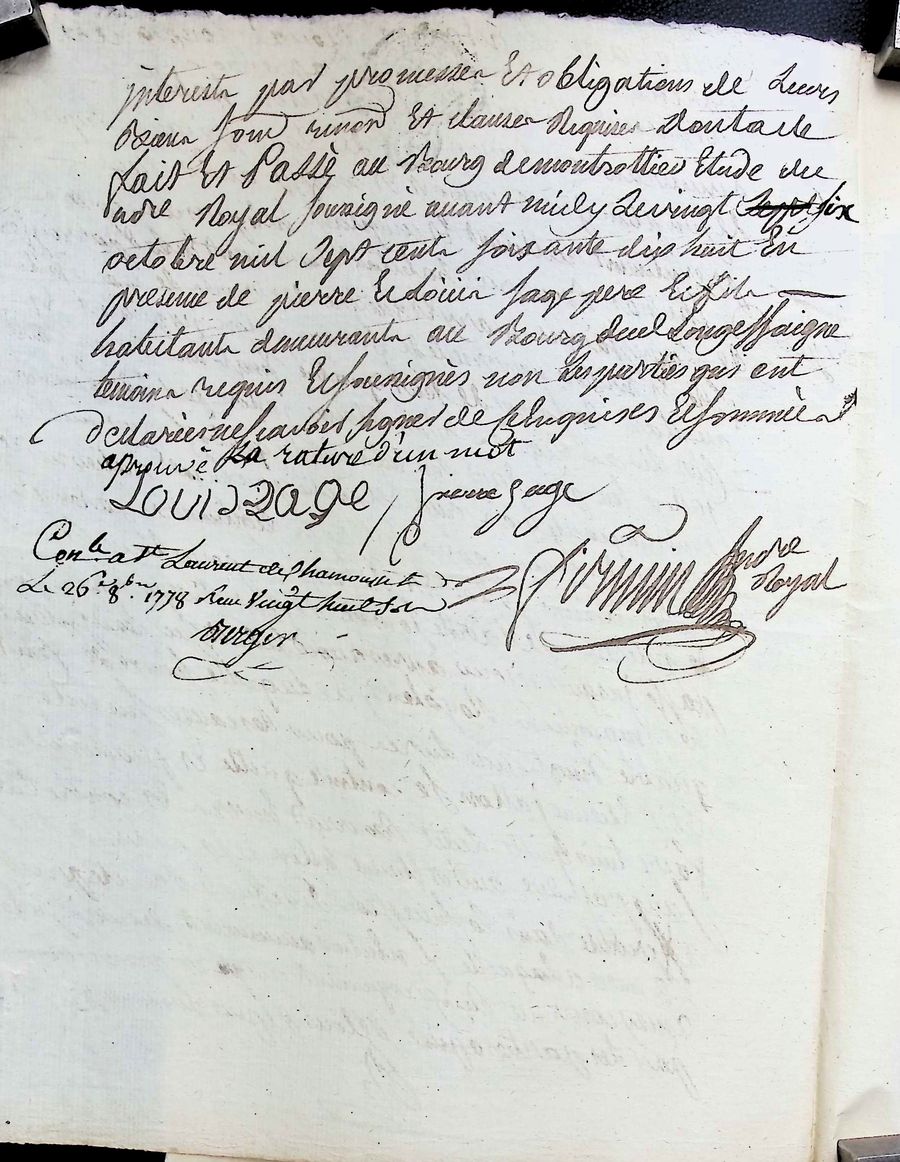 interests par promesses Et obligations de Leurs
Biens foue renon Et clauses Requises Dont acte
fait Et Passé au Bourg demontrottier Etude du
ndre Royal soussigné avant midy Le vingt sept six
octobre mil Sept cents soixante dix huit En
presence de pierre Et Loüis sage pere Et fils
habitants demeurants au Bourg de Longessaigne
temoins requis Et soussignès non Les parties qui ont
declarées ne scavoir signer de ce Enquises Et sommées
aprouvé La rature d'un mot
Louis Sage pierre Sage
Laurent de Chamousset
Le 26e 8bre 1778 Reçu Vingt huit sols
Berger
ndre
Royal